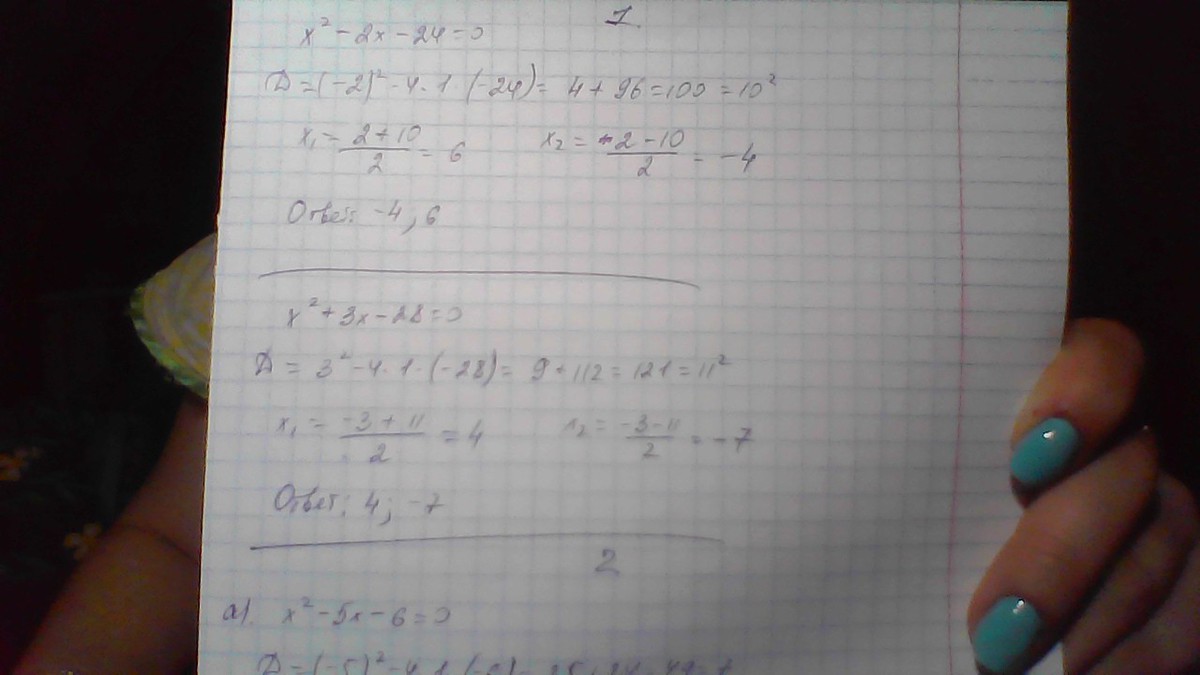 1.
x² - 2x - 24 = 0
D = (-2)² - 4 · 1 · (-24) = 4 + 96 = 100 = 10²
x₁ = (2 + 10)/2 = 6 x₂ = (2 - 10)/2 = -4
Ответ: -4; 6
x² + 3x - 28 = 0
D = 3² - 4 · 1 · (-28) = 9 + 112 = 121 = 11²
x₁ = (-3 + 11)/2 = 4 x₂ = (-3 - 11)/2 = -7
Ответ: 4; -7
2
а). x² - 5x - 6 = 0
D = (-5)² - 4 · 1 ·